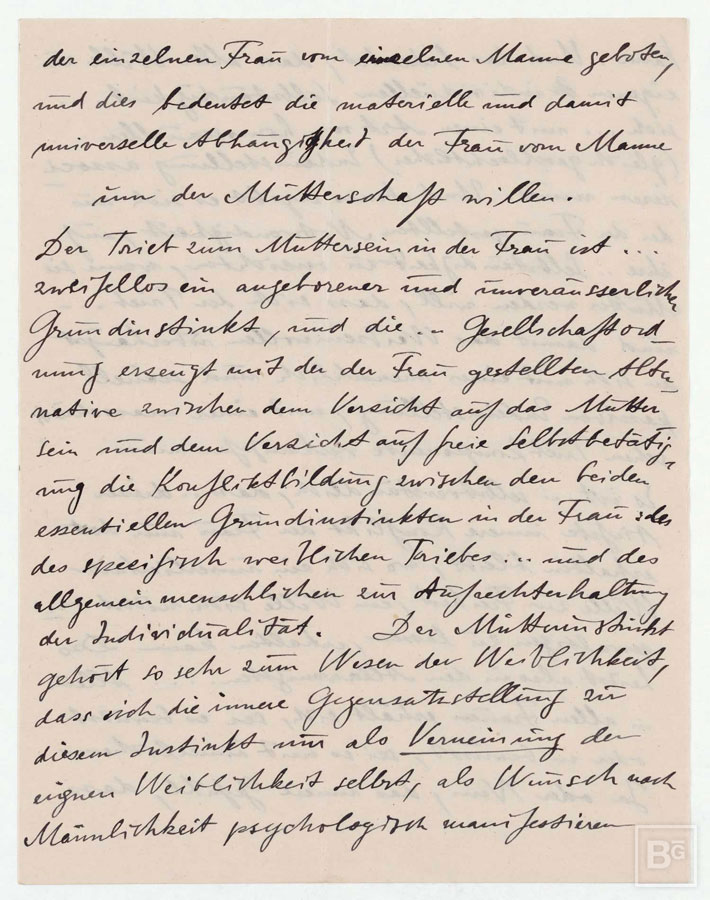 der einzelnen Frau vom einzelnen Manne geboten,
und dies bedeutet die materielle und damit
universelle Abhängigkeit der Frau vom Manne
um der Mutterschaft willen.
Der Trieb zum Muttersein in der Frau ist ...
zweifellos ein angeborener und unveräusserlicher
Grundinstinkt, und die ... Gesellschaftsord_
nung erzeugt mit der der Frau gestellten Alter_
native zwischen dem Verzicht auf das Mutter
sein und dem Verzicht auf freie Selbstbetätig_
ung die Konfliktbildung zwischen den beiden
essentiellen Grundinstinkten in der Frau: des
des specifisch weiblichen Triebes ... und des
allgemein menschlichen zur Aufrechterhaltung
der Individualität. Der Mutterinstinkt
gehört so sehr zum Wesen der Weiblichkeit,
dass sich die innere Gegensatzstellung zu
diesem Instinkt nur als Verneinung der
eignen Weiblichkeit selbst, als Wunsch nach
Männlichkeit psychologisch manifestieren
BG